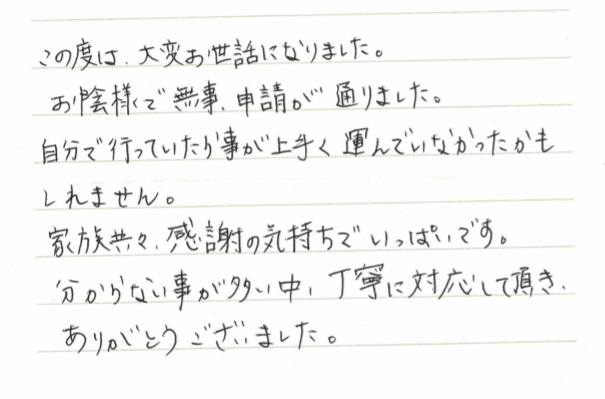 この度は、大変お世話になりました。
お陰様で無事、申請が通りました。
自分で行っていたら事が上手く運んでいなかったかも
しれません。
家族共々、感謝の気持ちでいっぱいです。
分からない事が多い中、丁寧に対応して頂き、
ありがとうございました。